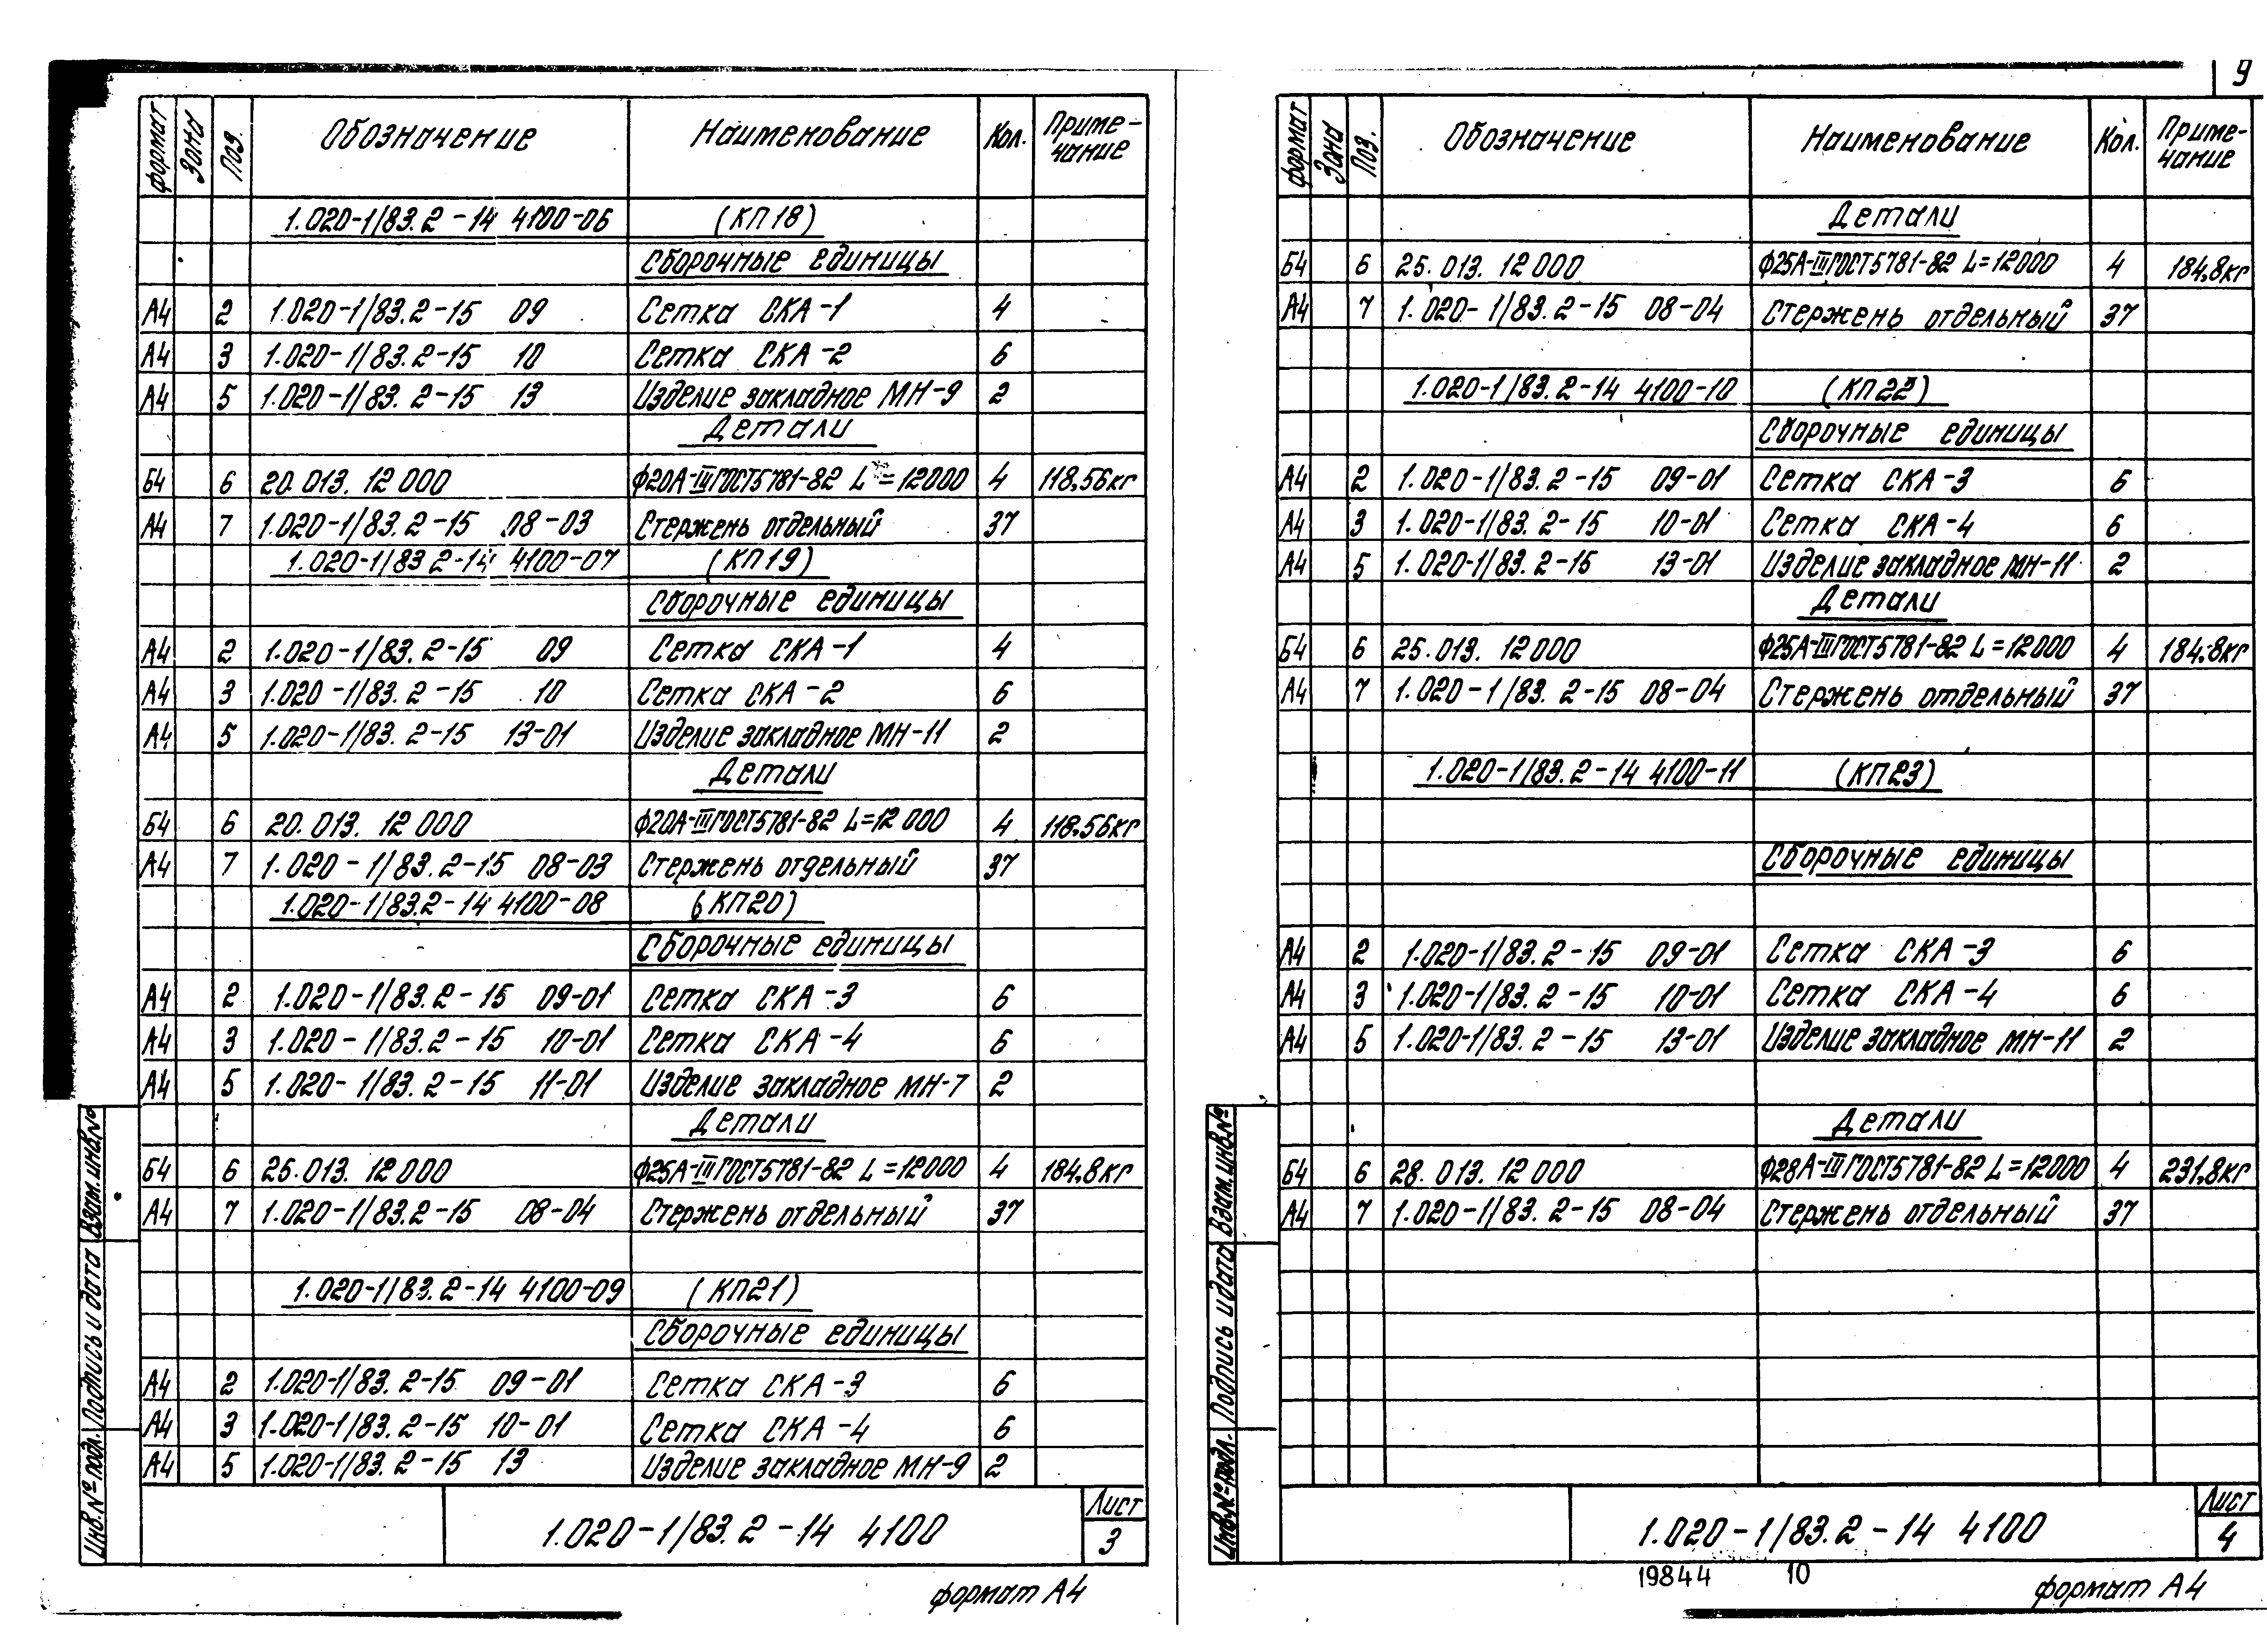 9
формат Зона Поз. Обозначение Наименование Кол. Приме-
чание
1.020-1/83.2-14 4100-06 (КП18)
Сборочные единицы
А4 2 1.020-1/83.2-15 09 Сетка СКА-1 4
А4 3 1.020-1/83.2-15 10 Сетка СКА-2 6
А4 5 1.020-1/83.2-15 13 Изделие закладное МН-9 2
Детали
Б4 6 20.013.12000 Ф20А-III ГОСТ5781-82 L=12000 4 118,56кг
А4 7 1.020-1/83.2-15 08-03 Стержень отдельный 37
1.020-1/83.2-14 4100-07 (КП19)
Сборочные единицы
А4 2 1.020-1/83.2-15 09 Сетка СКА-1 4
А4 3 1.020-1/83.2-15 10 Сетка СКА-2 6
А4 5 1.020-1/83.2-15 13-01 Изделие закладное МН-11 2
Детали
Б4 6 20.013.12000 Ф20А-III ГОСТ5781-82 L=12000 4 118,56кг
А4 7 1.020-1/83.2-15 08-03 Стержень отдельный 37
1.020-1/83.2-14 4100-08 (КП20)
Сборочные единицы
А4 2 1.020-1/83.2-15 09-01 Сетка СКА-3 6
А4 3 1.020-1/83.2-15 10-01 Сетка СКА-4 6
А4 5 1.020-1/83.2-15 11-01 Изделие закладное МН-7 2
Детали
Б4 6 25.013.12000 Ф25А-III ГОСТ5781-82 L=12000 4 184,8кг
А4 7 1.020-1/83.2-15 08-04 Стержень отдельный 37
1.020-1/83.2-14 4100-09 (КП21)
Сборочные единицы
А4 2 1.020-1/83.2-15 09-01 Сетка СКА-3 6
А4 3 1.020-1/83.2-15 10-01 Сетка СКА-4 6
А4 5 1.020-1/83.2-15 13 Изделие закладное МН-9 2
Инв.№ подл. Подпись и дата Взам.инв.№
1.020-1/83.2-14 4100
Лист
3
формат А4
формат Зона Поз. Обозначение Наименование Кол. Приме-
чание
Детали
Б4 6 25.013.12000 Ф25А-III ГОСТ5781-82 L=12000 4 184,8кг
А4 7 1.020-1/83.2-15 08-04 Стержень отдельный 37
1.020-1/83.2-14 4100-10 (КП22)
Сборочные единицы
А4 2 1.020-1/83.2-15 09-01 Сетка СКА-3 6
А4 3 1.020-1/83.2-15 10-01 Сетка СКА-4 6
А4 5 1.020-1/83.2-15 13-01 Изделие закладное МН-11 2
Детали
Б4 6 25.013.12000 Ф25А-III ГОСТ5781-82 L=12000 4 184,8кг
А4 7 1.020-1/83.2-15 08-04 Стержень отдельный 37
1.020-1/83.2-14 4100-11 (КП23)
Сборочные единицы
А4 2 1.020-1/83.2-15 09-01 Сетка СКА-3 6
А4 3 1.020-1/83.2-15 10-01 Сетка СКА-4 6
А4 5 1.020-1/83.2-15 13-01 Изделие закладное МН-11 2
Детали
Б4 6 28.013.12000 Ф28А-III ГОСТ5781-82 L=12000 4 231,8кг
А4 7 1.020-1/83.2-15 08-04 Стержень отдельный 37
Инв.№ подл. Подпись и дата Взам.инв.№
1.020-1/83.2-14 4100
Лист
4
19844 10
формат А4